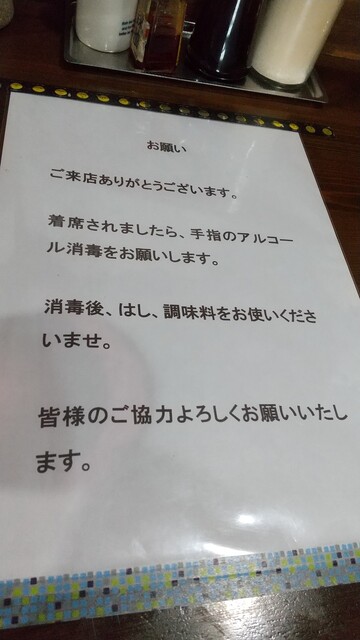 お願い
ご来店ありがとうございます。
着席されましたら、手指のアルコー
ル消毒をお願いします。
消毒後、はし、調味料をお使いくださ
いませ。
皆様のご協力よろしくお願いいたし
ます。